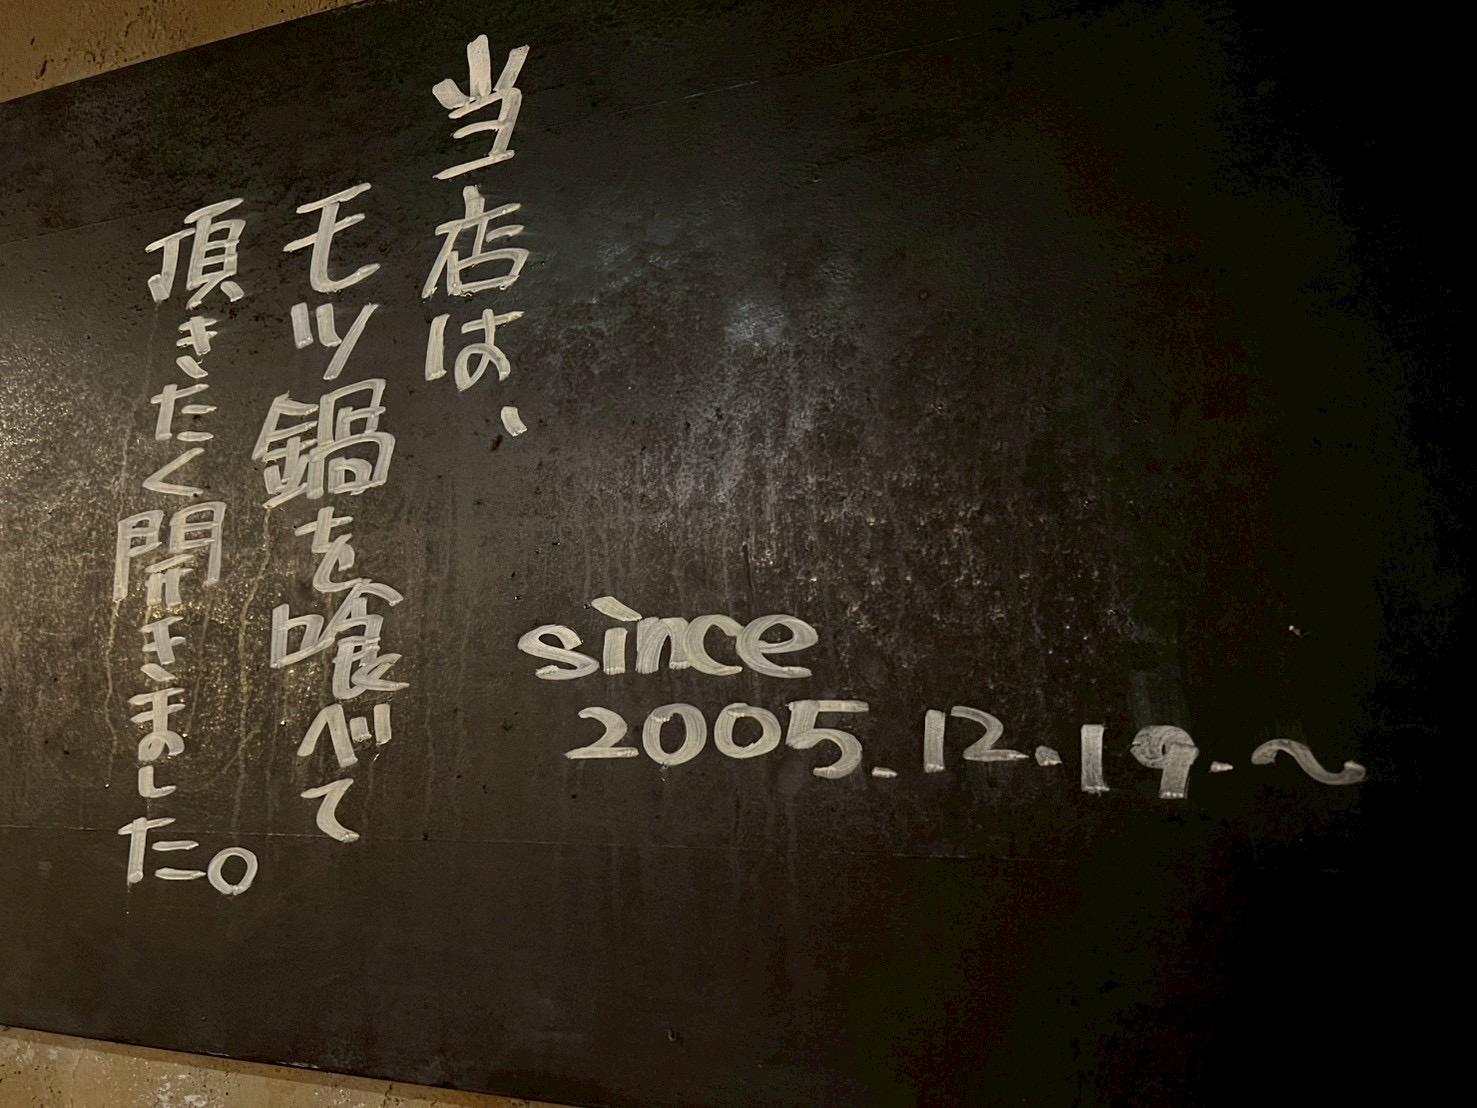 当店は、
モツ鍋を喰べて
頂きたく開きました。
since
2005.12.19.～